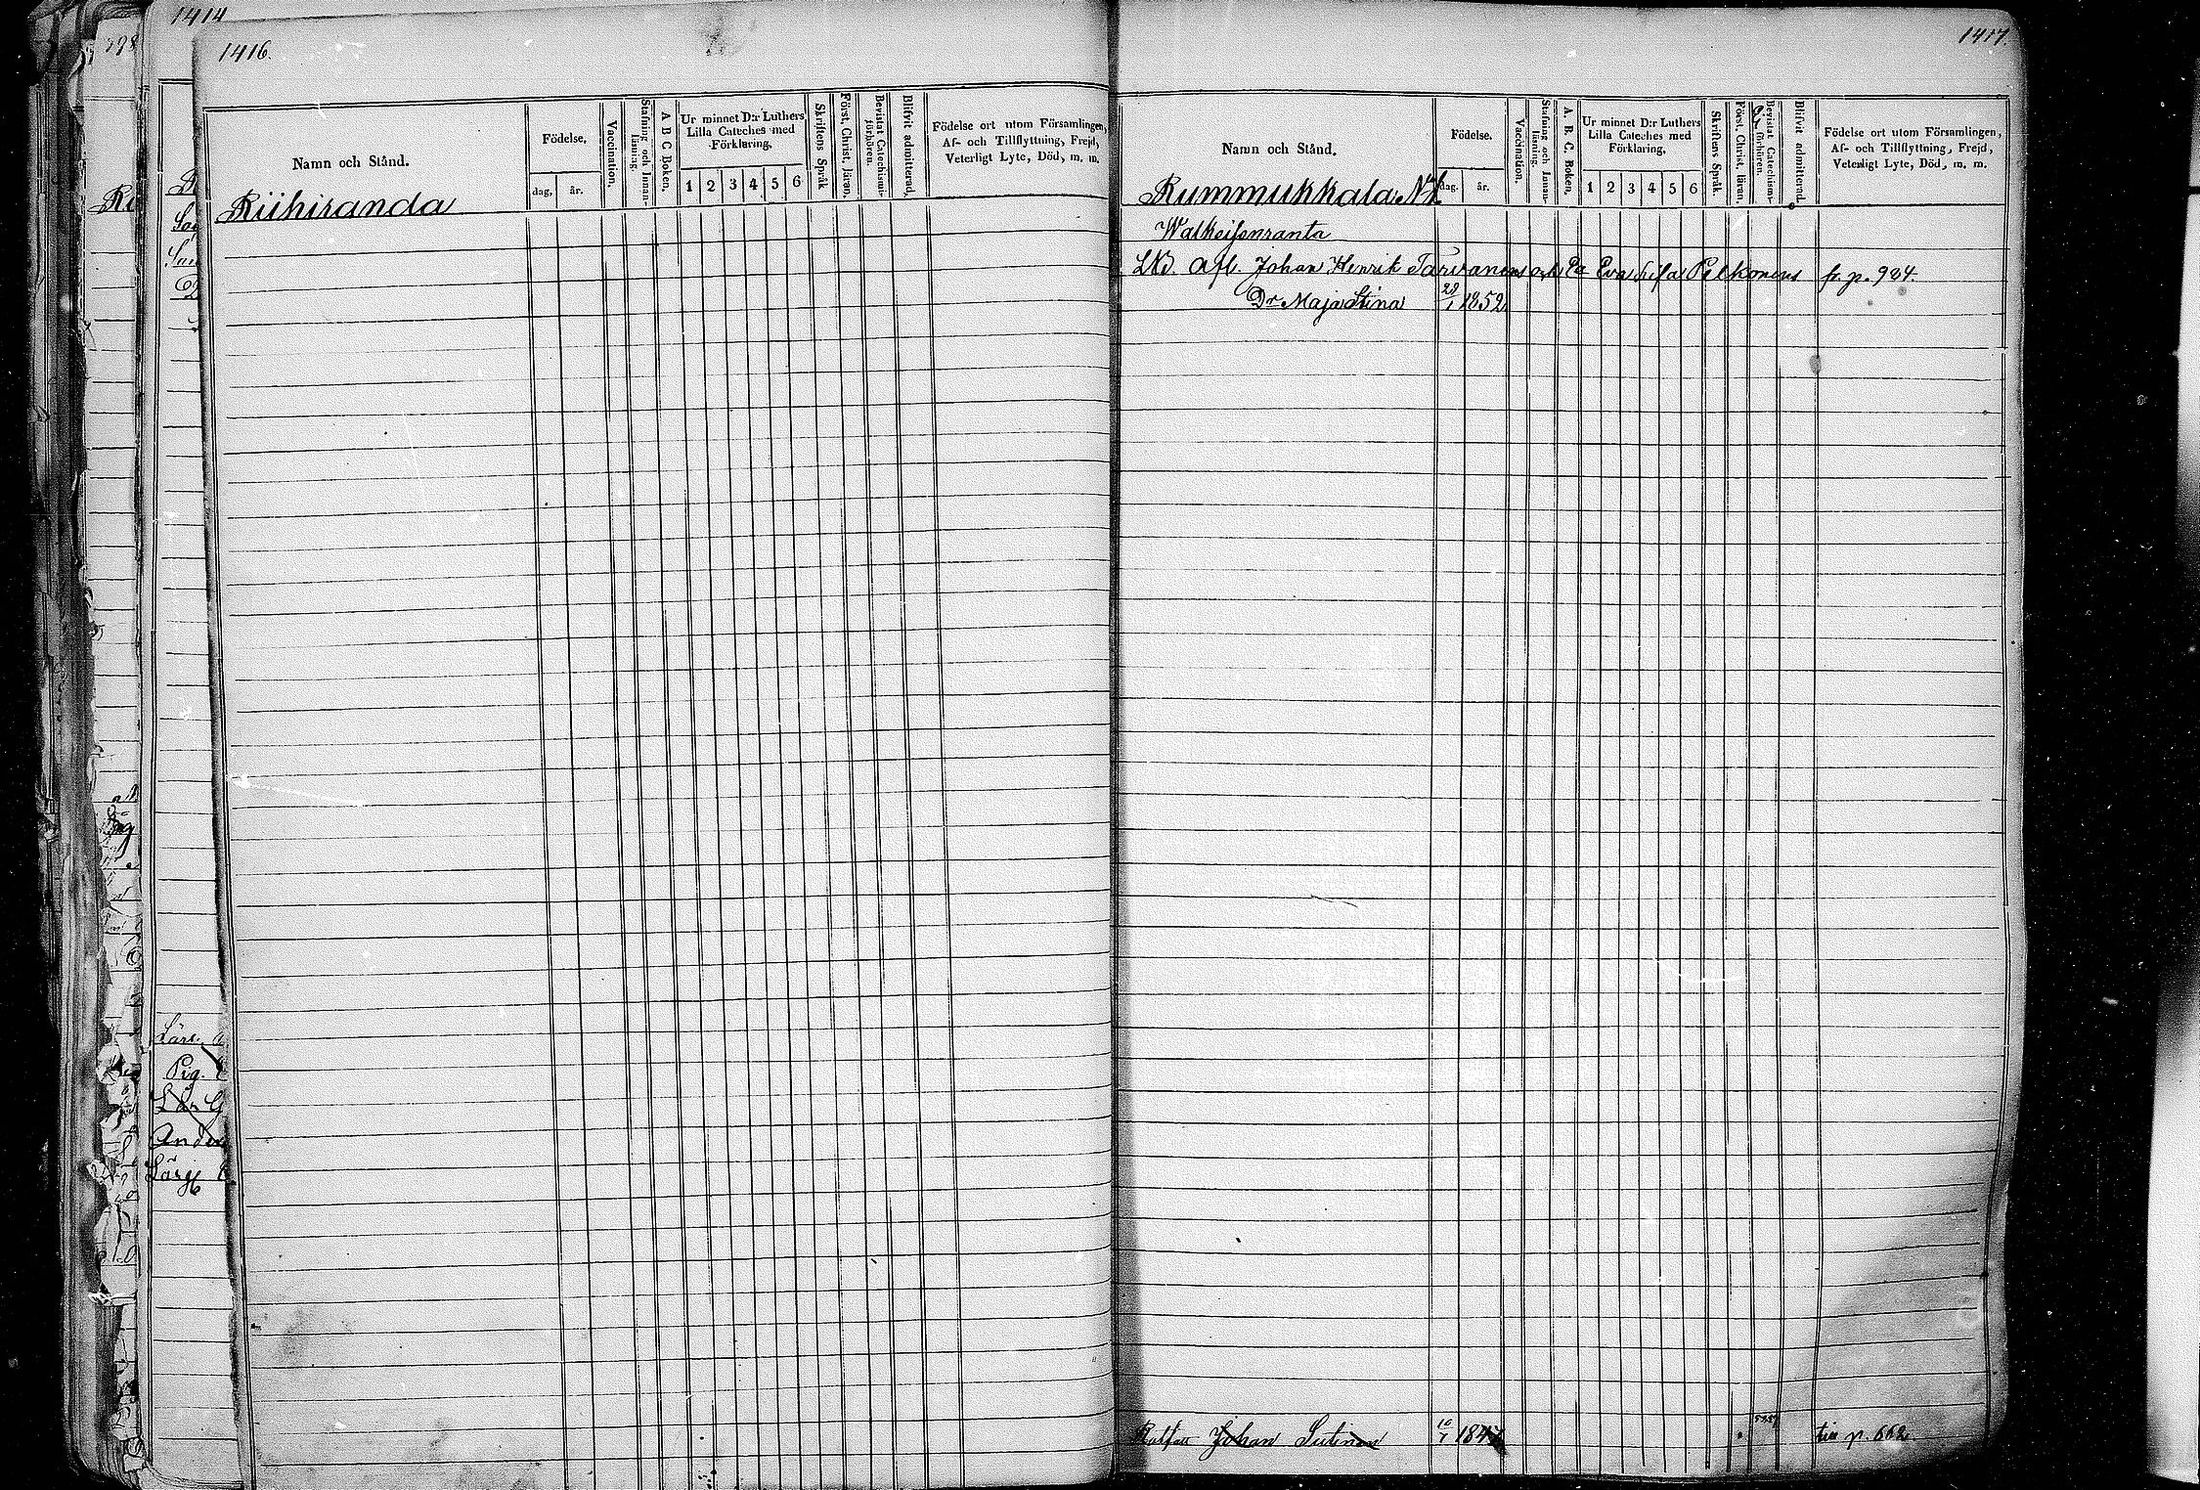 1414
1416.
Namn och Stånd.
Födelse,
dag, år.
Vaccination.
Stafning och Innanläsning.
A B C Boken.
Ur minnet D:r Luthers Lilla Cateches med Förklaring,
1 2 3 4 5 6
Skriftens Språk
Först. Christ. läran.
Bevistat Catechismi-förhören.
Blifvit admitterad.
Födelse ort utom Församlingen,
Af- och Tillflyttning, Frejd,
Veterligt Lyte, Död, m. m.
Riihiranda
Pig.
1417.
Namn och Stånd.
Födelse.
dag. år.
Vaccination.
Stafning och Innanläsning.
A. B. C. Boken.
Ur minnet D:r Luthers Lilla Cateches med Förklaring,
1 2 3 4 5 6
Skriftens Språk.
Först. Christ. läran.
Bevistat Catechismi-förhören.
Blifvit admitterad.
Födelse ort utom Församlingen,
Af- och Tillflyttning, Frejd,
Veterligt Lyte, Död, m. m.
Rummukkala
Walkeisenranta
Afl. Johan Henrik Tarvanens och Eva Pelkonens fr. p. 924.
Dr Maja Stina 28/1 1852
Johan Sutinen 10/1 till p. 662